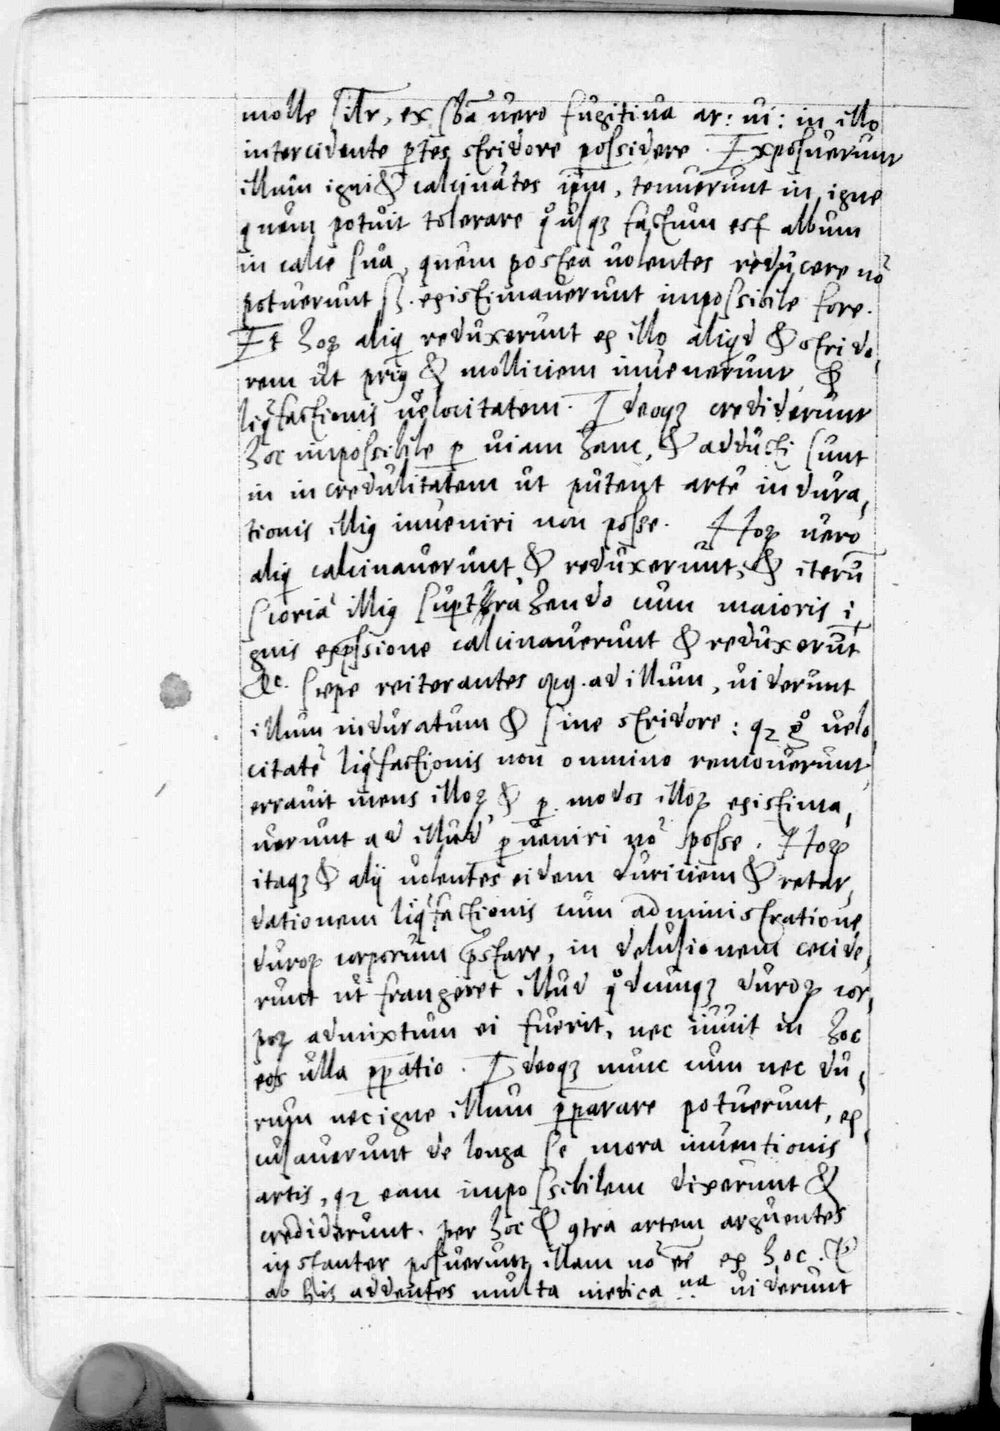 molle silr, ex sba vero fugitiva ar: vi: in illo
intercidente ptes stridore possidere. Exposuerunt
illum igni & calcinates ipm, tenuerunt in igne
quem potuit tolerare q̊usqȝ factum est album
in calce sua, quem postea volentes reducere nō
potuerunt sȝ. existimaverunt impossibile fore.
Et hoꝝ aliq reduxerunt ex illo aliqd & strido,
rem ut prig & molliciem invenerunt, &
liqfactionis velocitatem. Ideoqȝ crediderunt
hoc impossibile p viam hanc, & adducti sunt
in incredulitatem ut putent artē indura,
tionis illig inveniri non posse. Hoꝝ vero
aliq calcinaverunt & reduxerunt, & iterū
scoriā illig suptrahendo cum maioris i,
gnis expssione calcinaverunt & reduxerūt
&c. sæpe reiterantes opg. ad illum, viderunt
illum induratum & sine stridore: qȝ g̊ velo,
citatē liqfactionis non omnino removerunt
erravit mens illoꝝ & p modos illoꝝ existima,
verunt ad illud pveniri nō posse. Hoꝝ
itaqȝ & alij volentes eidem duriciem & retar,
dationem liqfactionis cum administratione
duroꝝ corporum pstare, in delusionem cecide,
runt ut frangeret illud q̊dcumqȝ duroꝝ cor,
poꝝ admixtum ei fuerit, nec iuvit in hoc
eos ulla pparatio. Ideoqȝ nunc cum nec du,
rum nec igne illum pparare potuerunt, ex,
cusaverunt de longa se mora inventionis
artis, qȝ eam impossibilem dixerunt &
crediderunt. per hoc & 9tra artem arguentes
instanter posuerunt illam nō eē ex hoc. &
ab his addentes multa medica na viderunt